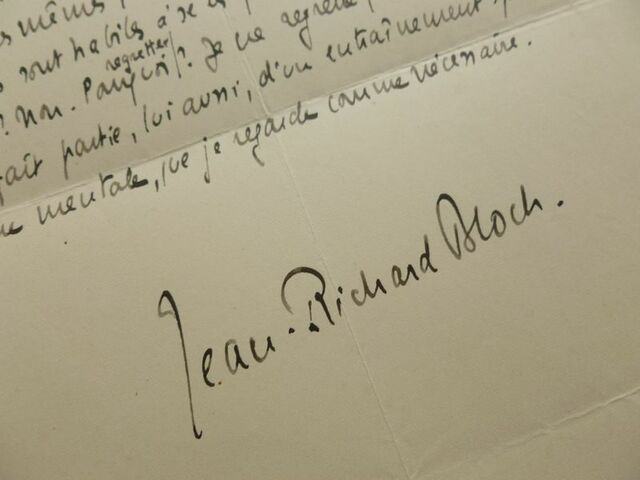 mêmes,
sont habiles à se
regretter
? Non. Pourquoi ? Je ne regrette
fait partie, lui aussi, d'un entraînement
mentale, que je regarde comme nécessaire.
Jean-Richard Bloch.